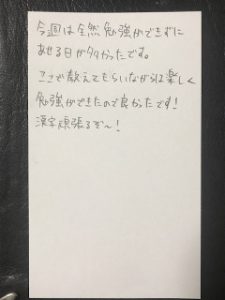 今週は全然勉強ができずに
あせる日が多かったです。
ここで教えてもらいながらは楽しく
勉強ができたので良かったです!
漢字頑張るぞ〜!